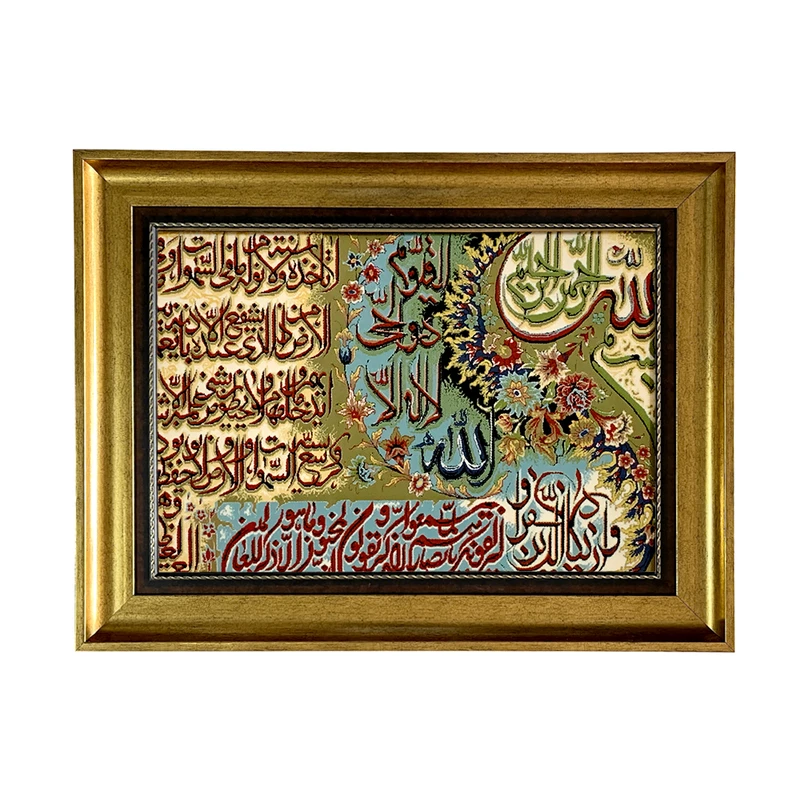 بسم الله الرحمن الرحيم
الله لا اله الا
هو الحي
القيوم
لا تأخذه سنة ولا نوم له ما في السموات وما في
الارض من ذا الذي يشفع عنده الا باذنه يعلم ما بين
ايديهم وما خلفهم ولا يحيطون بشيء من علمه الا بما شاء
وسع كرسيه السموات والارض ولا يؤده حفظهما
وهو العلي العظيم
وان يكاد الذين كفروا
ليزلقونك بابصارهم لما سمعوا الذكر ويقولون انه لمجنون وما هو الا ذكر للعالمين